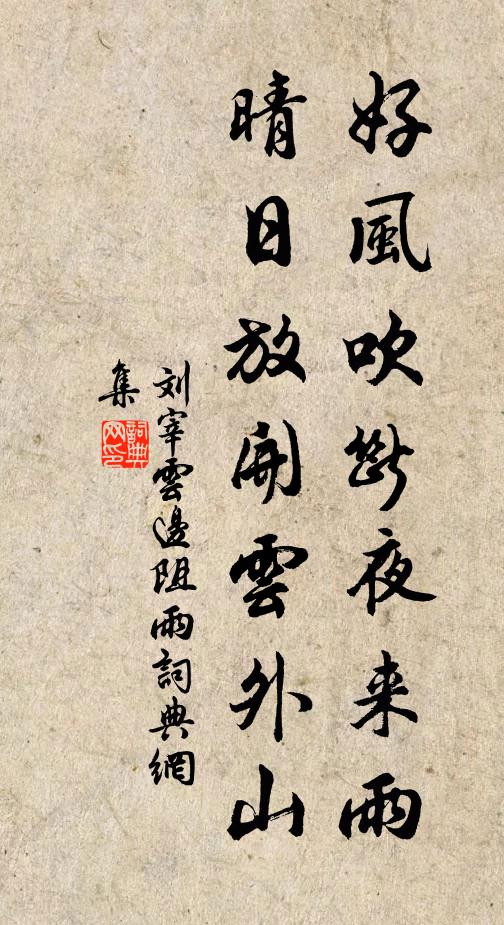 好風吹斷夜来雨
晴日放開雲外山
刘宰雲邊阻雨詞典網
集
詞典
网印